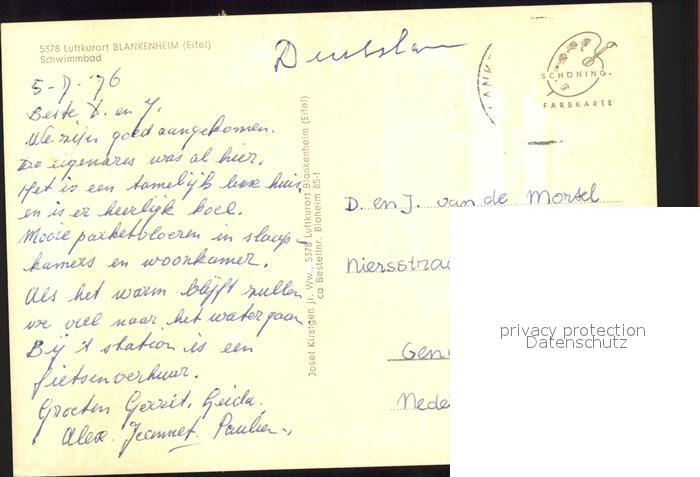 5378 Luftkurort BLANKENHEIM (Eifel)
Schwimmbad
5-7-'76
Beste D. en J.
We zijn goed aangekomen.
De eigenares was al hier.
Het is een tamelijk luxe huis
en is er heerlijk koel.
Mooie parketvloeren in slaap-
kamers en woonkamer.
Als het warm blijft zullen
we veel naar het water gaan
Bij 't station is een
fietsenverhuur.
Groeten Gerrit, Geida.
Alex. Jeannet. Paulien.
Josef Kirstgen jr. Ww., 5378 Luftkurort Blankenheim (Eifel)
ca Bestellnr. Blaheim 85-f
SCHÖNING.
FARBKARTE
D. en J. van de Morsel
Niersstraa
Gen
Nede
privacy protection
Datenschutz